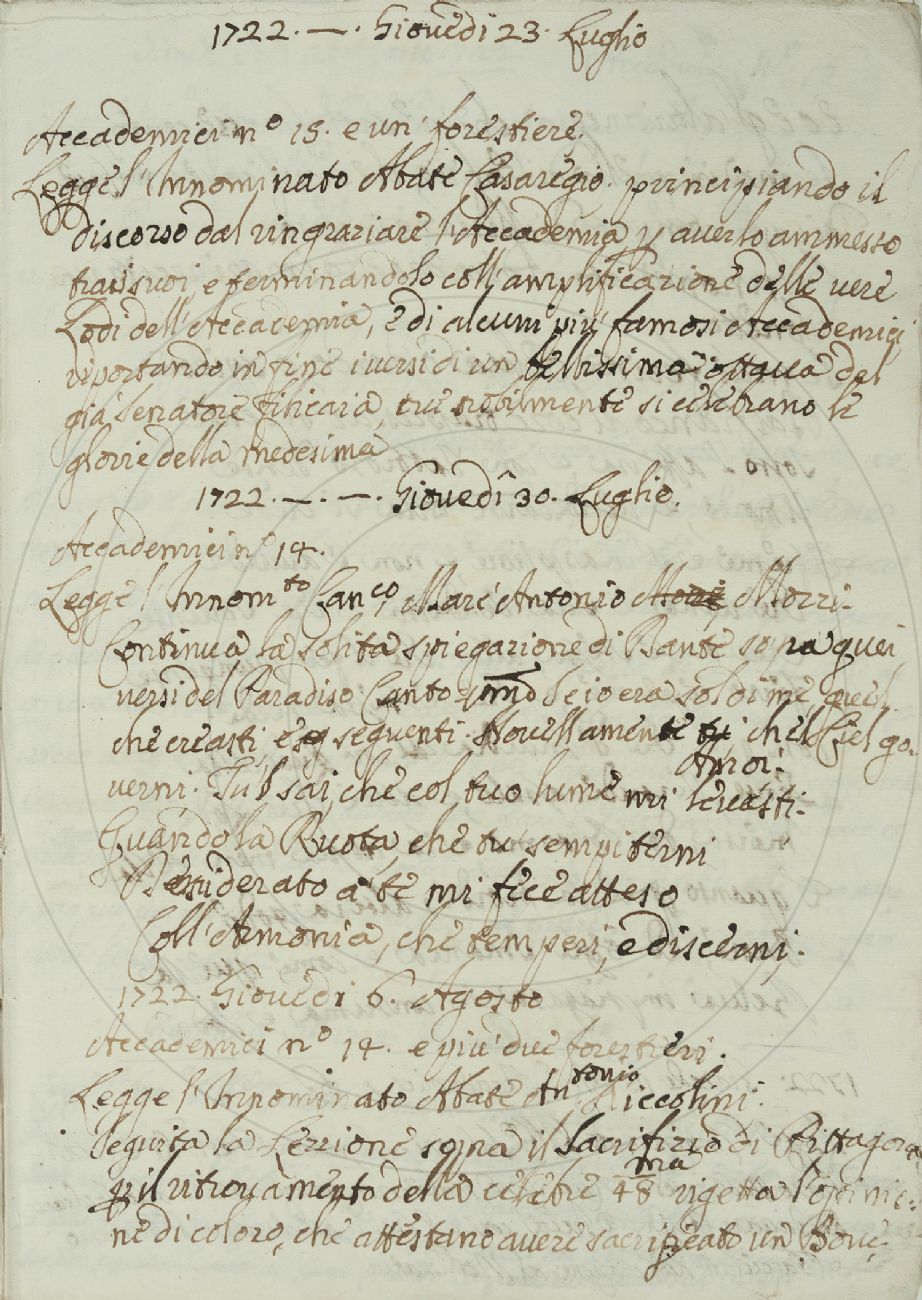 1722. —. Giovedì 23. Luglio
Accademici nº 15. e un' forestiere.
Legge l'Innominato Abate Casaregio. principiando il
discorso dal ringraziare l'Accademia p averlo ammesso
tra i suoi, e terminandolo coll'amplificazione delle vere
Lodi dell'Accademia, e di alcuni più famosi Accademici,
riportando in fine i versi di un bellissima ottava del
già Senatore Filicaia, ove nobilmente si celebrano le
glorie della medesima
1722. —. —. Giovedì 30. Luglio.
Accademici nº 14.
Legge l'Innom.to Can.co Marc'Antonio Mozzi.
Continua la solita spiegazione di Dante sopra quei
versi del Paradiso Canto pmo Se io era sol di me quel
che creasti, e seguenti. Novellamente chel Ciel go-
Amor.
verni. Tu'l sai, che col tuo lume mi levasti.
Quando la Ruota, che tu sempiterni
Desiderato a te mi fece atteso
Coll'Armonia, che temperi, e discerni;
1722. Giovedì 6. Agosto
Accademici nº 14. e più due forestieri.
Legge l'Innominato Abate Antonio Niccolini.
Seguita la Lezzione sopra il Sacrifizio di Pittagora
p il ritrovamento della celebre 48 ma rigetta l'opinio-
ne di coloro, che attestano avere sacrificato un Bove.